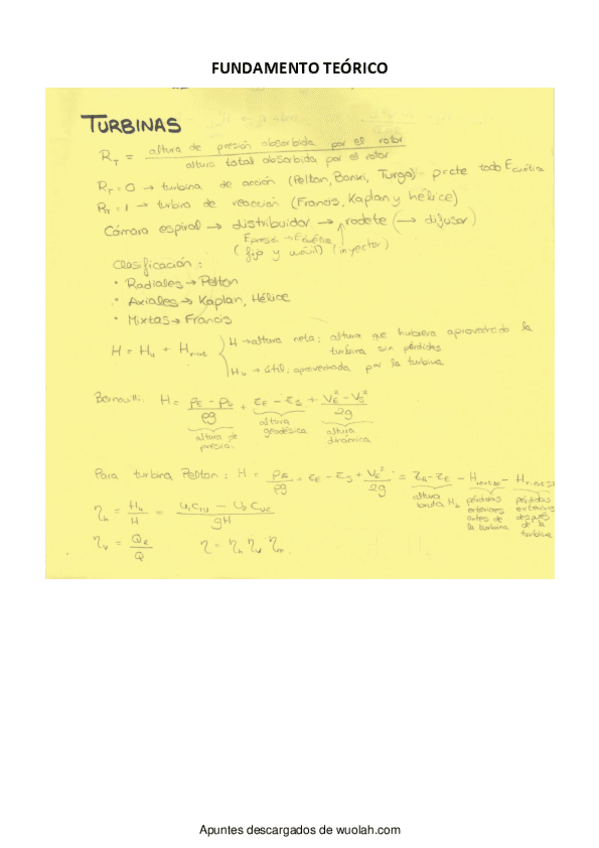 FUNDAMENTO TEÓRICO
TURBINAS
R_T = altura de presión absorbida por el rotor / altura total absorbida por el rotor
R_T = 0 → turbina de acción (Pelton, Banki, Turgo)
R_T = 1 → turbina de reacción (Francis, Kaplan y hélice)
Cámara espiral → distribuidor → rodete (→ difusor)
(fijo y móvil) (inyector)
Clasificación:
• Radiales → Pelton
• Axiales → Kaplan, Hélice
• Mixtas → Francis
H = Hu + H
H → altura neta: altura que hubiera aprovechado la
turbina sin pérdidas
Hu → útil: aprovechada por la turbina
Bernoulli: H = (p_E - p_S)/ρg + z_E - z_S + (V_E² - V_S²)/2g
altura de presión
altura geodésica
altura dinámica
Para turbina Pelton: H = p_E/ρg + z_E - z_S + V_E²/2g =
altura bruta H_b
pérdidas exteriores antes de la turbina
pérdidas exteriores después de la turbina
η_h = Hu/H = (u₁c₁u - u₂c₂u)/gH
η_v = Q_R/Q
η = η_h η_v η_m
Apuntes descargados de wuolah.com